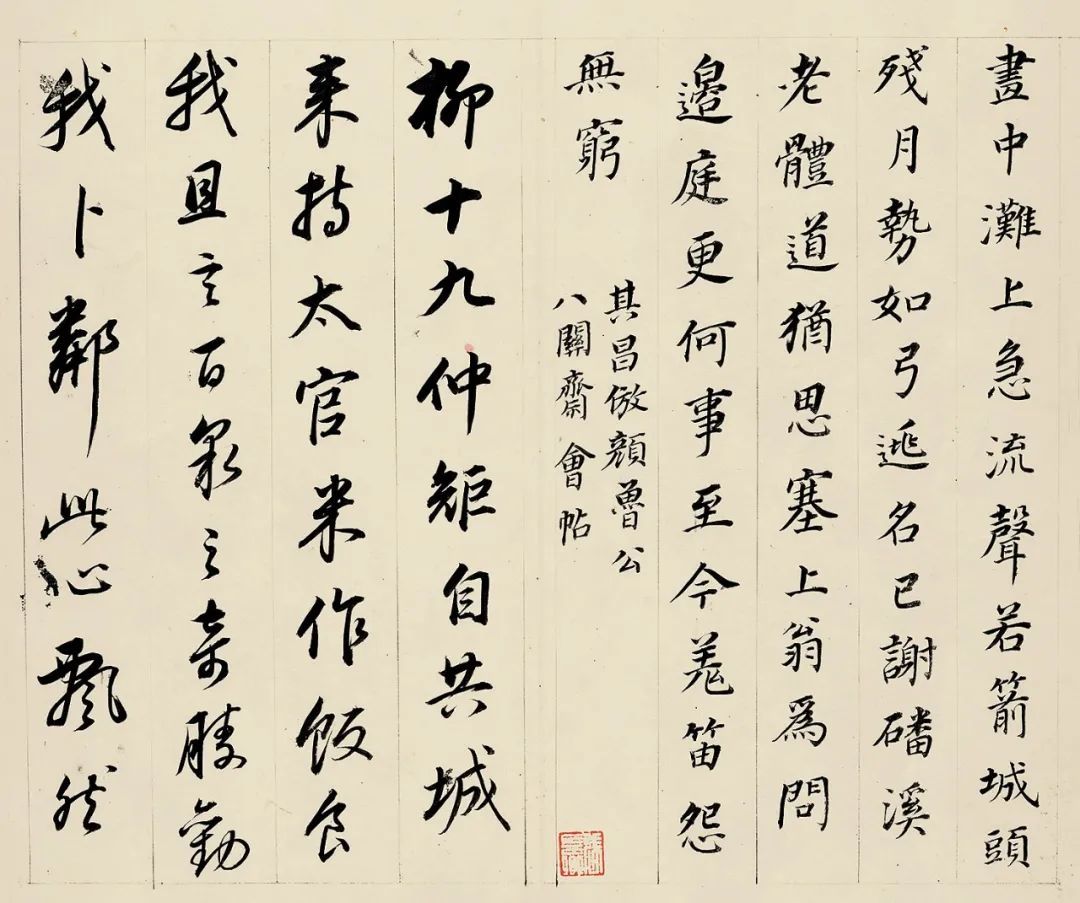 畫中灘上急流聲若箭城頭
殘月勢如弓逃名已謝磻溪
老體道猶思塞上翁為問
邉庭更何事至今羌笛怨
無窮
其昌倣顏魯公
八關齋會帖
柳十九仲矩自共城
来持太官米作飯食
我且言百泉之奇勝勸
我卜鄰此心飄然